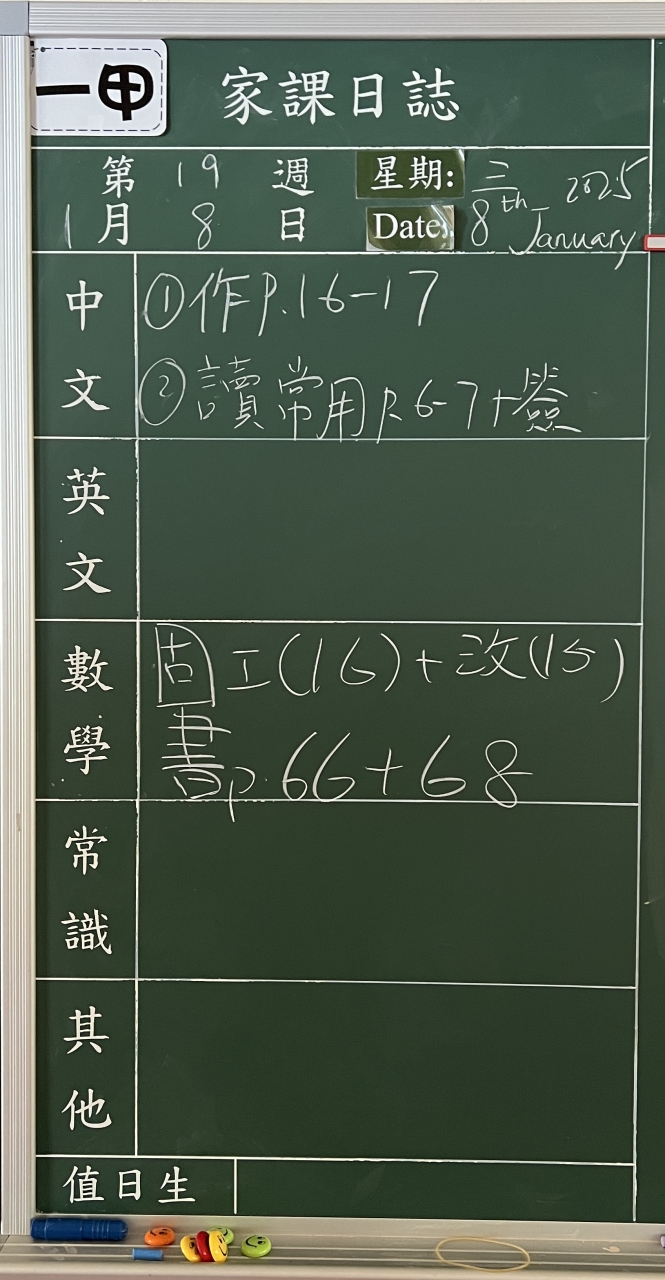 一甲
家課日誌
第 19 週 星期: 三
1月 8 日 Date: 8th January 2025
中文
①作P.16-17
②讀常用P.6-7+簽
英文
數學
固工(16)+改(15)
書p.66+68
常識
其他
值日生